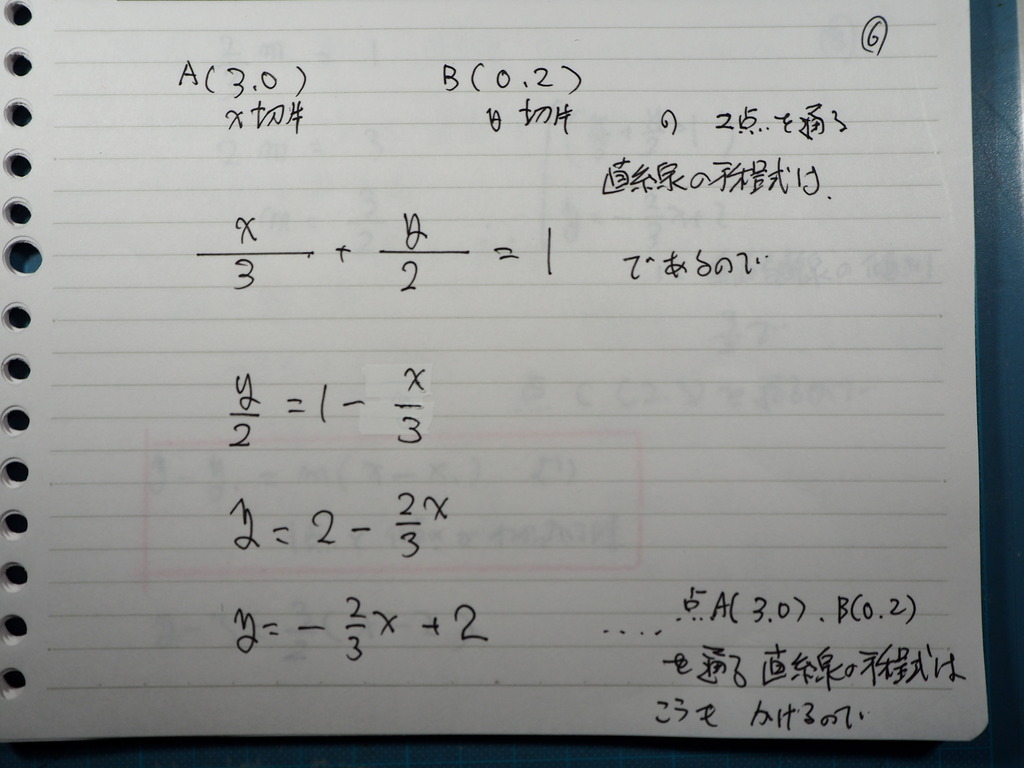 ⑥
A(3.0) B(0.2)
x切片 y切片 の 2点を通る
直線の方程式は、
x/3 + y/2 = 1 であるので
y/2 = 1 - x/3
y = 2 - 2/3 x
y = - 2/3 x + 2 ..... 点A(3.0)、B(0.2)
を通る直線の方程式は
こうも かけるので